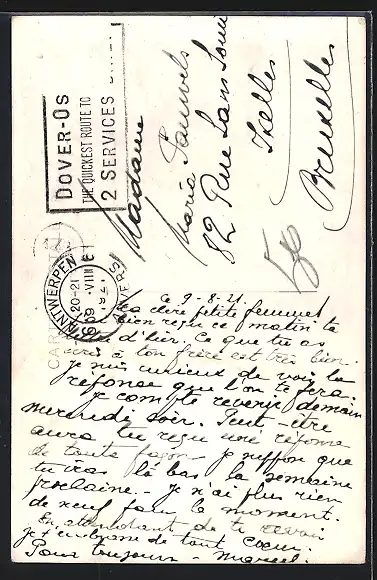 DOVER-OS
THE QUICKEST ROUTE TO
2 SERVICES
ANTWERPEN
20-21
09 VIII
1921
ANVERS
Madame
Maria Pauwels
82 Rue Sans Souci
Ixelles
Bruxelles
Ce 9-8-21.
petite femme
bien reçu ce matin ta
d'hier. Ce que tu as
écris à ton frère est très bien.
je suis curieux de voir la
réponse que l'on te fera.
je compte revenir demain
mercredi soir. Peut-être
auras tu reçu une réponse
de toute façon je suppose que
tu iras là bas la semaine
prochaine. - je n'ai plus rien
de neuf pour le moment.
En attendant de te revoir
je t'embrasse de tout cœur.
Pour toujours Marcel.